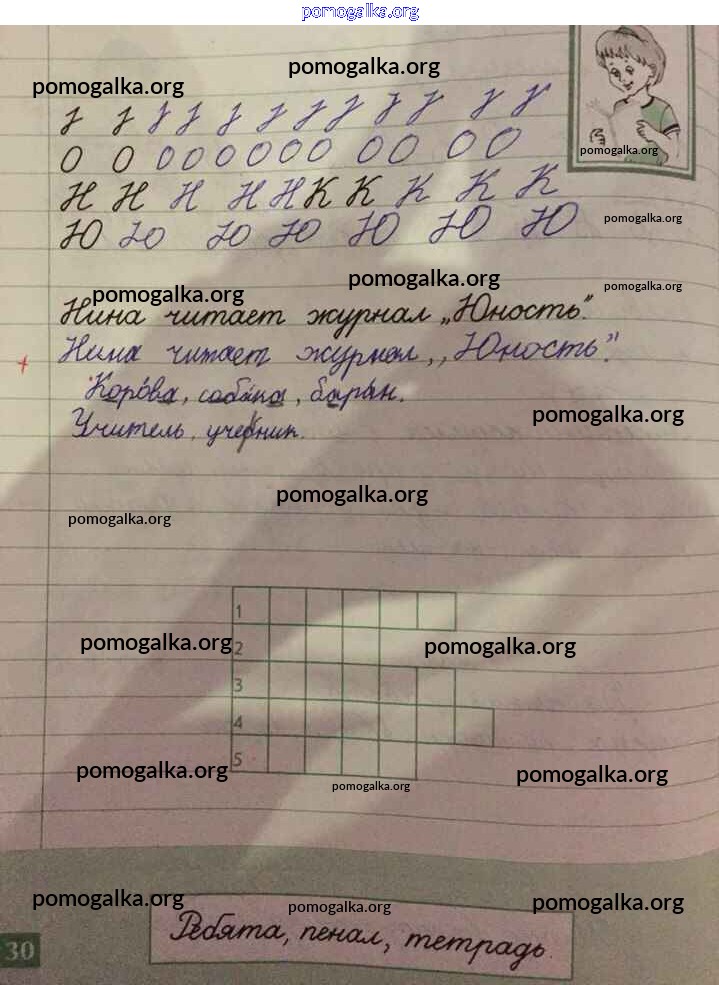 pomogalka.org
pomogalka.org
pomogalka.org
О О О О О О О О О О О О
pomogalka.org
Н Н Н Н Н К К К К К
pomogalka.org
Ю Ю Ю Ю Ю Ю Ю
pomogalka.org
pomogalka.org
pomogalka.org
Нина читает журнал „Юность".
Нина читает журнал „Юность".
Корова, собака, баран.
Учитель, учебник.
pomogalka.org
pomogalka.org
pomogalka.org
1
pomogalka.org
2
pomogalka.org
3
4
5
pomogalka.org
pomogalka.org
pomogalka.org
pomogalka.org
pomogalka.org
pomogalka.org
Ребята, пенал, тетрадь.
30